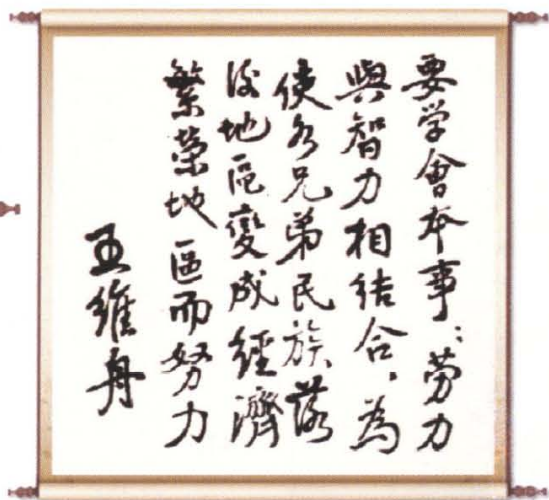 要学會本事：劳力
與智力相结合，為
使各兄弟民族落
後地區變成經濟
繁榮地區而努力
王維舟